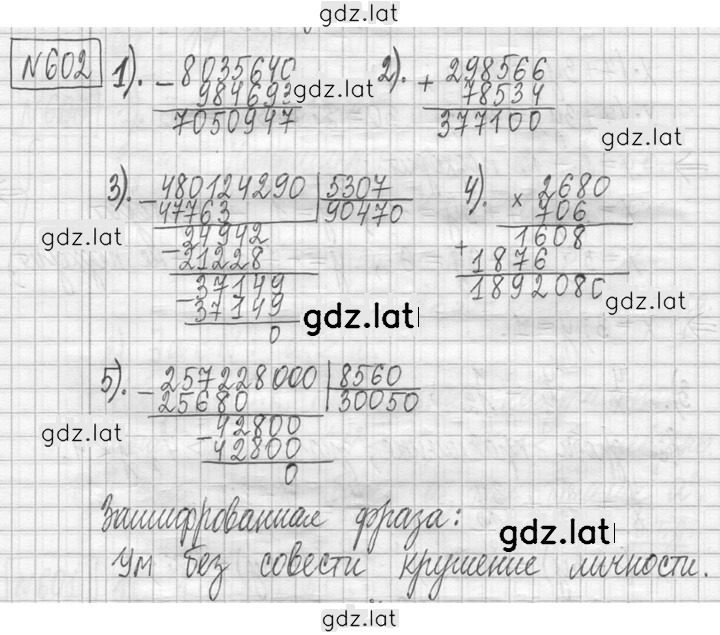 gdz.lat
№602 1). - 8035640 2). + 298566
984693 gdz.lat 78534
7050947 377100 gdz.lat
3). - 480124290 | 5307 4). × 2680
47763 90470 706
gdz.lat 24942 1608
- 21228 + 1876
37149 1892080 gdz.lat
- 37149 gdz.lat
0
5). - 257228000 | 8560
25680 30050
gdz.lat - 42800
42800
0
Зашифрованная фраза:
gdz.lat
Ум без совести крушение личности.
gdz.lat